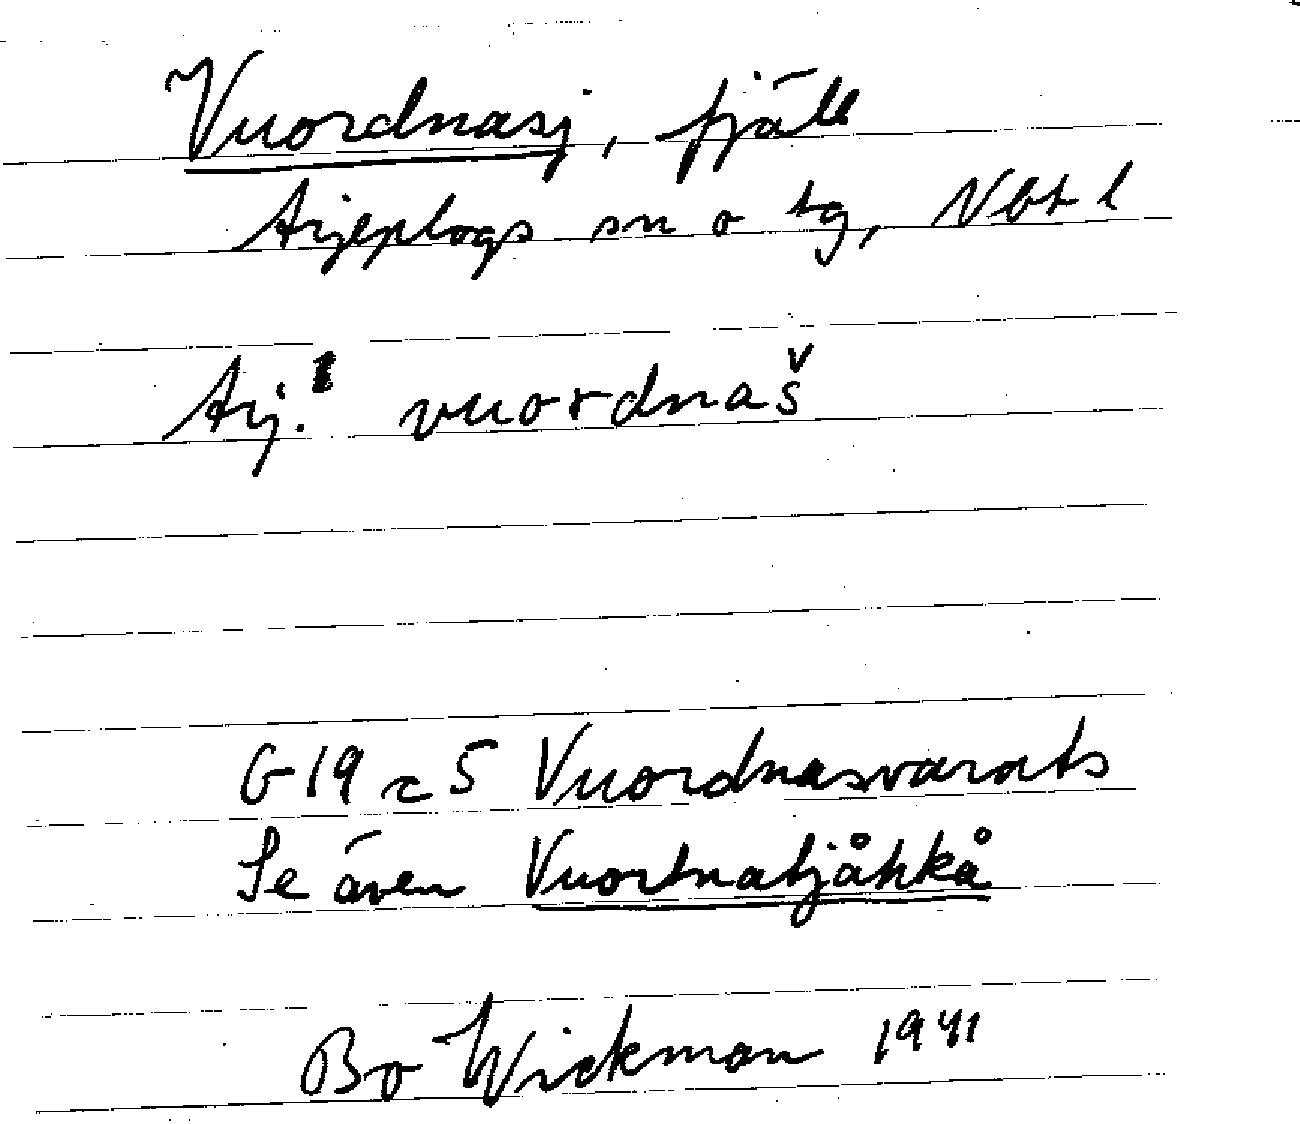 Vuordnasj, fjäll
Arjeplogs sn o tg, Nbt l
Arj. vuordnaš
G 19 c 5 Vuordnasvarats
Se även Vuortnatjåhkå
Bo Wickman 1941